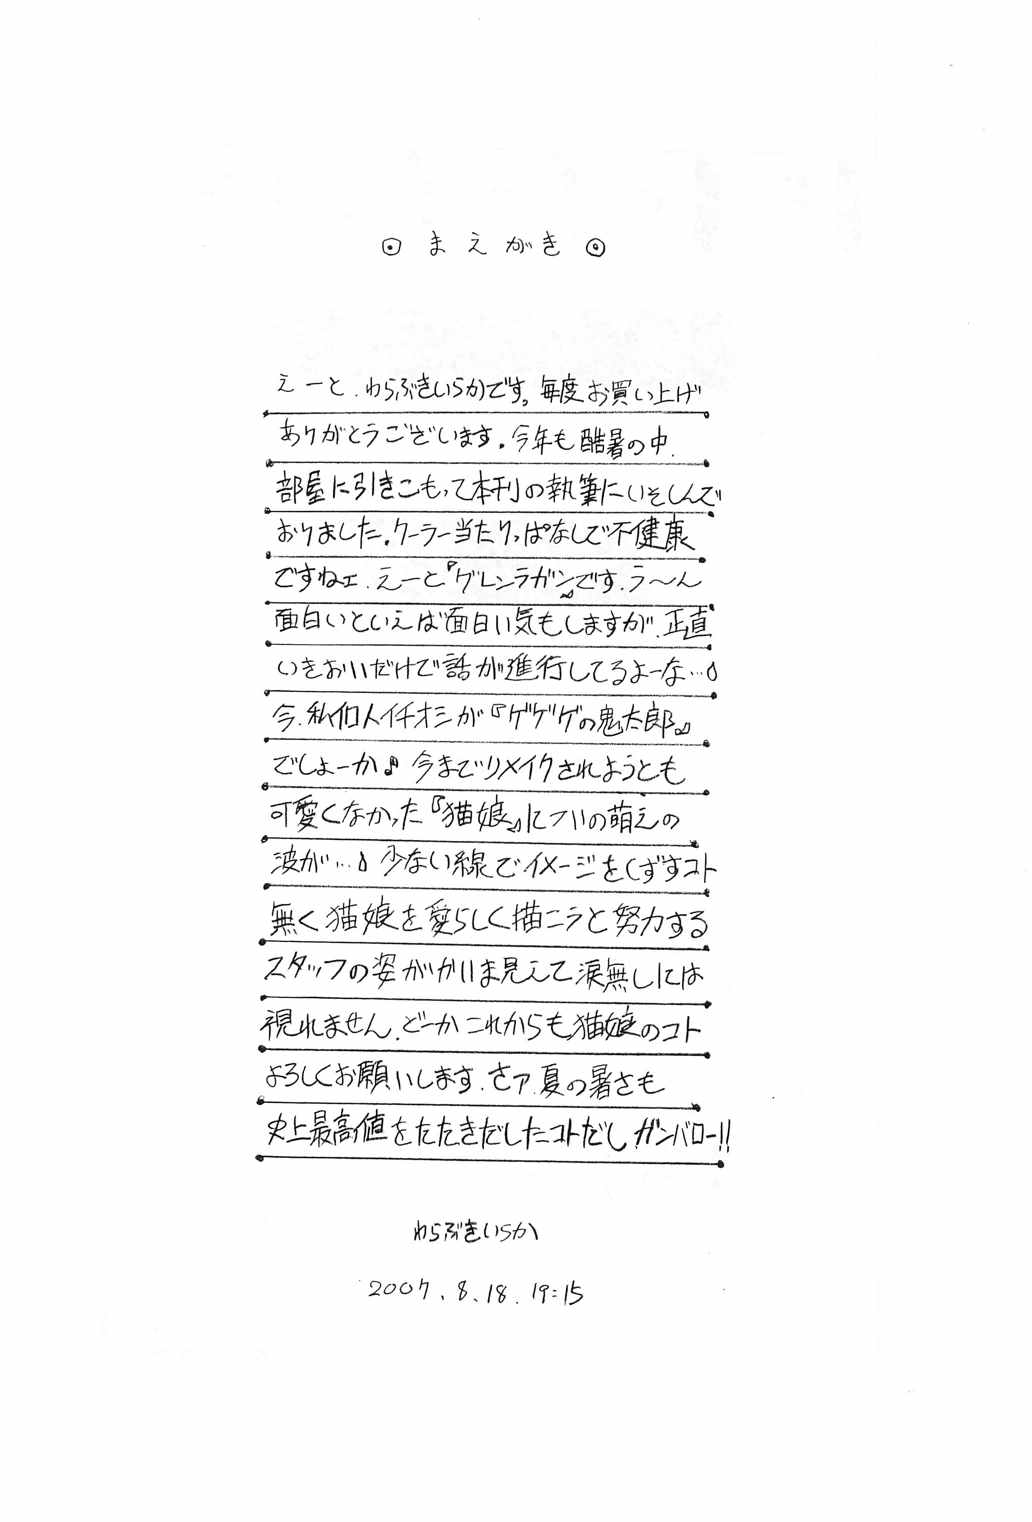 ⊙ まえがき ⊙
えーと、わらぶきいらかです。毎度お買い上げ
ありがとうございます。今年も酷暑の中、
部屋に引きこもって本刊の執筆にいそしんで
おりました。クーラー当たりっぱなしで不健康
ですねェ、えーと『グレンラガン』です、う〜ん
面白いといえば面白い気もしますが、正直
いきおいだけで話が進行してるよーな…
今、私個人イチオシが『ゲゲゲの鬼太郎』
でしょーか♪ 今までリメイクされようとも
可愛くなかった『猫娘』についの萌えの
波が… 少ない線でイメージをくずすコト
無く猫娘を愛らしく描こうと努力する
スタッフの姿がかいま見えて涙無しには
視れません、どーかこれからも猫娘のコト
よろしくお願いします、さァ、夏の暑さも
史上最高値をたたきだしたコトだしガンバロー!!
わらぶきいらか
2007、8、18、19:15